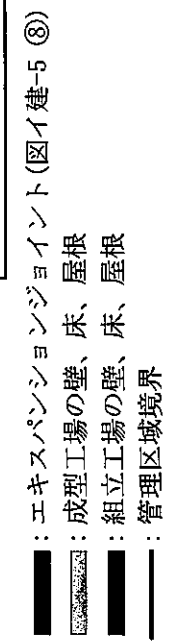 ：エキスパンションジョイント(図イ建-5 ⑧)
：成型工場の壁、床、屋根
：組立工場の壁、床、屋根
：管理区域境界